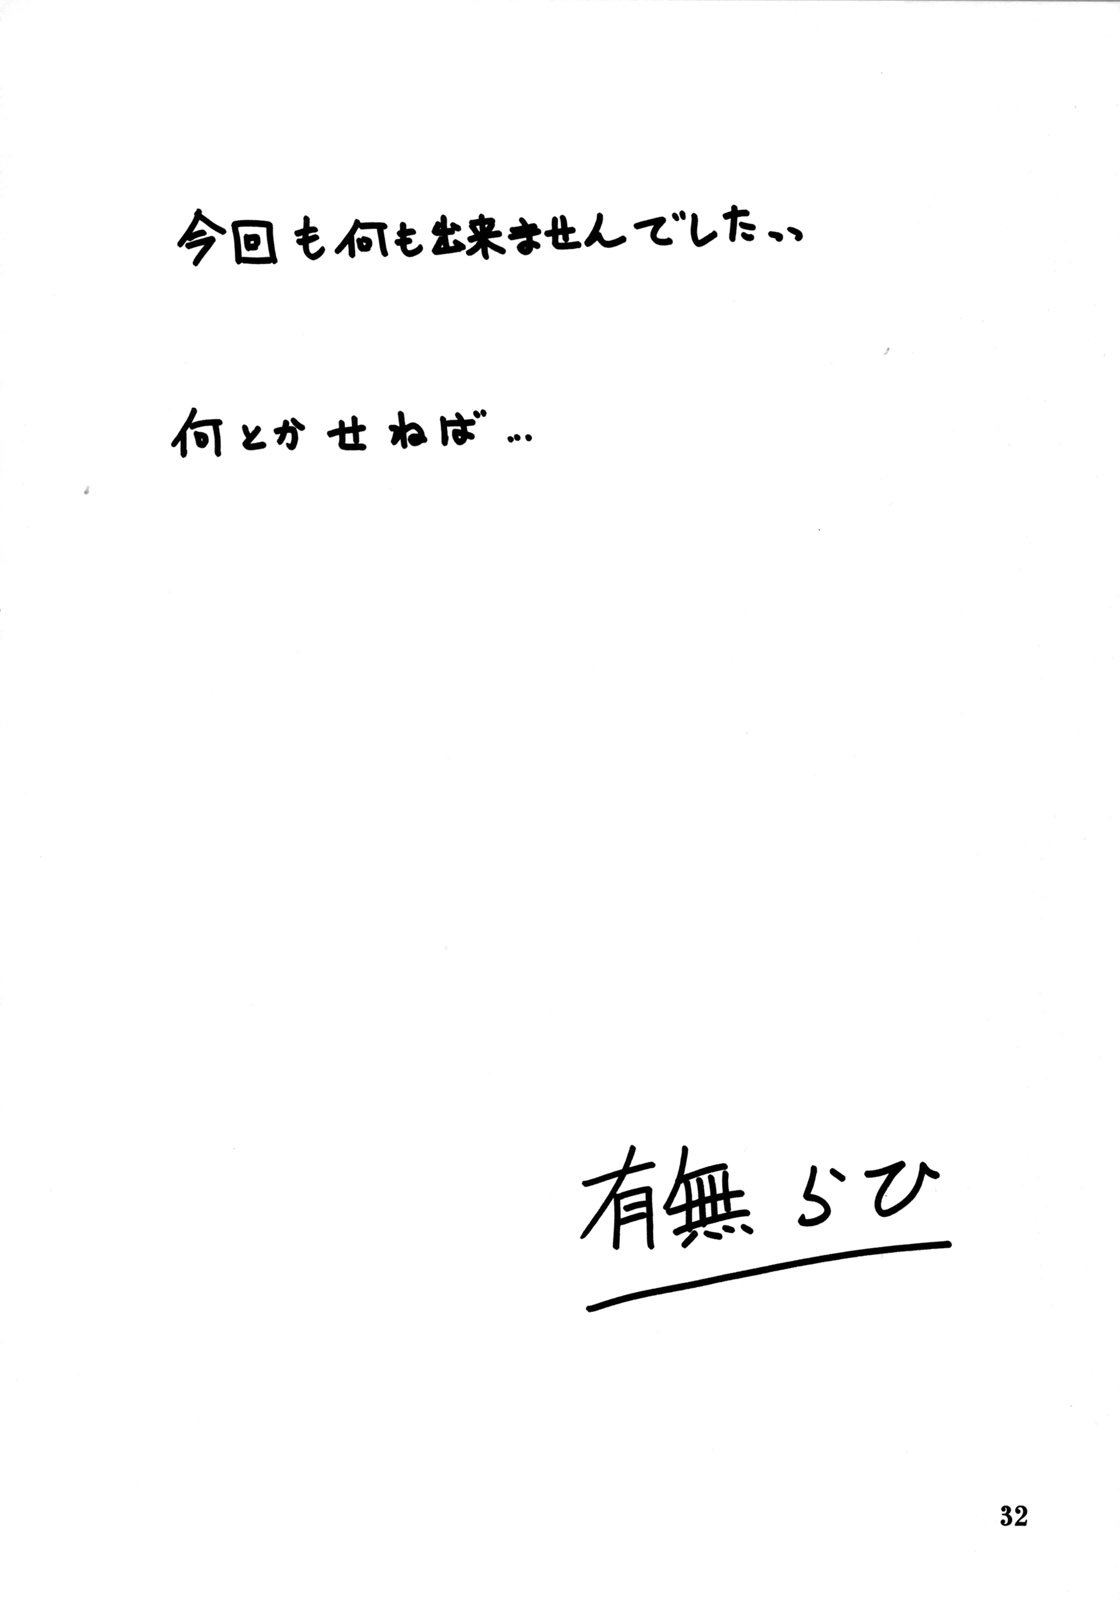 今回も何も出来ませんでしたっっ
何とかせねば…
有無らひ
32